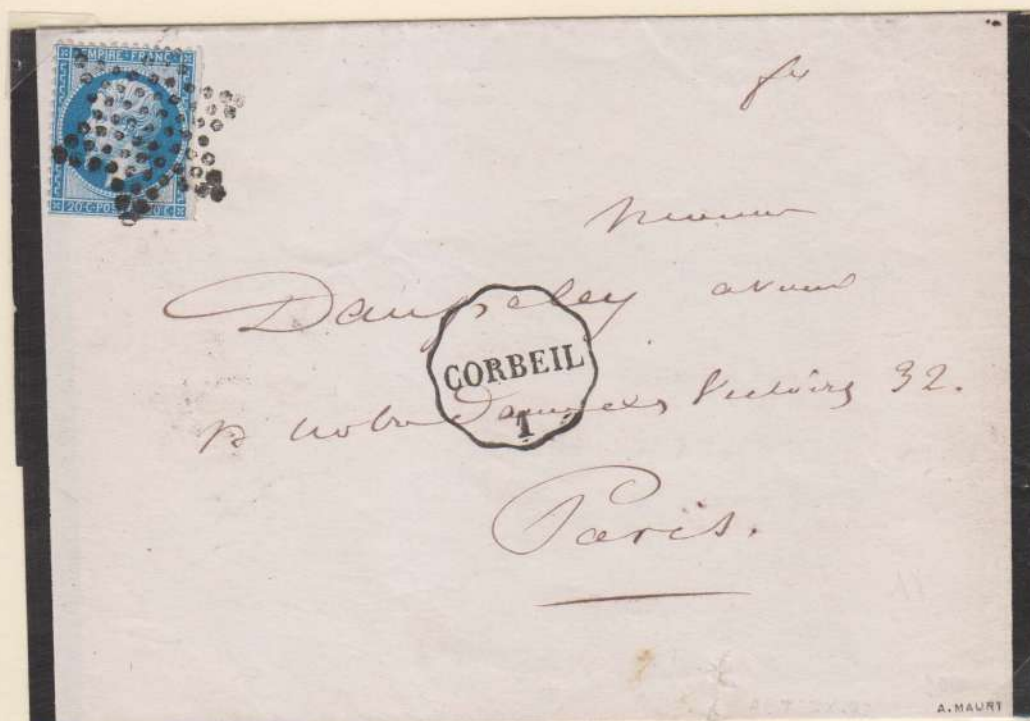 EMPIRE · FRANC
20·C·POS 0·C
Monsieur
Dampeley avoué
CORBEIL
1
r notre Dame des Victoires 32.
Paris.
A. MAURY